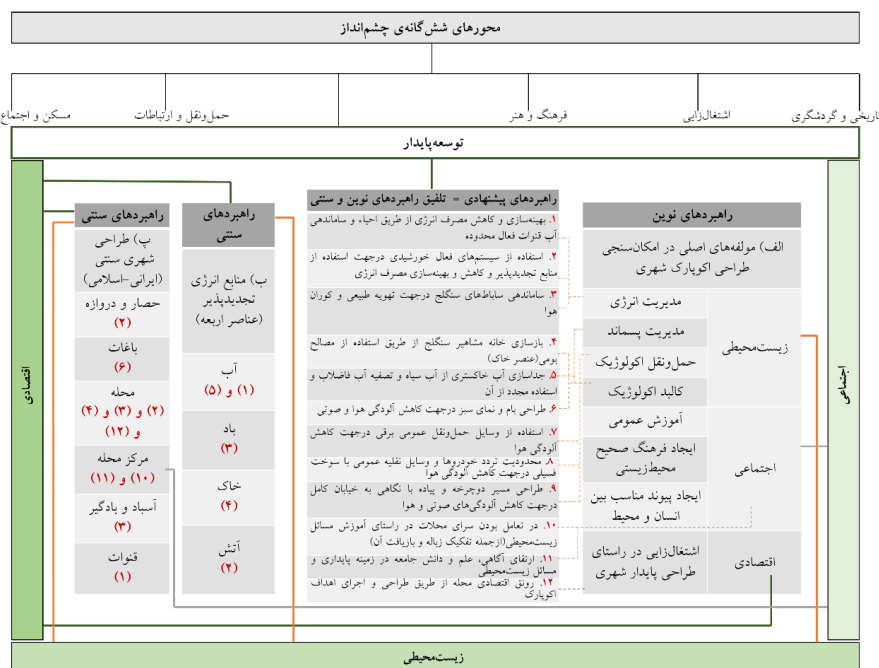 محورهای شش‌گانه‌ی چشم‌انداز
تاریخی و گردشگری
اشتغال‌زایی
فرهنگ و هنر
حمل‌ونقل و ارتباطات
مسکن و اجتماع
توسعه‌پایدار
اجتماعی
راهبردهای نوین
الف) مولفه‌های اصلی در امکان‌سنجی
طراحی اکوپارک شهری
زیست‌محیطی
مدیریت انرژی
مدیریت پسماند
حمل‌ونقل اکولوژیک
کالبد اکولوژیک
اجتماعی
آموزش عمومی
ایجاد فرهنگ صحیح
محیط‌زیستی
ایجاد پیوند مناسب بین
انسان و محیط
اقتصادی
اشتغال‌زایی در راستای
طراحی پایدار شهری
راهبردهای پیشنهادی = تلفیق راهبردهای نوین و سنتی
۱. بهینه‌سازی و کاهش مصرف انرژی از طریق احیاء و ساماندهی
آب قنوات فعال محدوده
۲. استفاده از سیستم‌های فعال خورشیدی درجهت استفاده از
منابع تجدیدپذیر و کاهش و بهینه‌سازی مصرف انرژی
۳. ساماندهی ساباط‌های سنگلج درجهت تهویه طبیعی و کوران
هوا
۴. بازسازی خانه مشاهیر سنگلج از طریق استفاده از مصالح
بومی(عنصر خاک)
۵. جداسازی آب خاکستری از آب سیاه و تصفیه آب فاضلاب و
استفاده مجدد از آن
۶. طراحی بام و نمای سبز درجهت کاهش آلودگی هوا و صوتی
۷. استفاده از وسایل حمل‌ونقل عمومی برقی درجهت کاهش
آلودگی هوا
۸. محدودیت تردد خودروها و وسایل نقلیه عمومی با سوخت
فسیلی درجهت کاهش آلودگی هوا
۹. طراحی مسیر دوچرخه و پیاده با نگاهی به خیابان کامل
درجهت کاهش آلودگی‌های صوتی و هوا
۱۰. در تعامل بودن سرای محلات در راستای آموزش مسائل
زیست‌محیطی(ازجمله تفکیک زباله و بازیافت آن)
۱۱. ارتقای آگاهی، علم و دانش جامعه در زمینه پایداری و
مسائل زیست‌محیطی
۱۲. رونق اقتصادی محله از طریق طراحی و اجرای اهداف
اکوپارک
راهبردهای
سنتی
ب) منابع انرژی
تجدیدپذیر
(عناصر اربعه)
آب
(۱) و (۵)
باد
(۳)
خاک
(۴)
آتش
(۲)
راهبردهای سنتی
پ) طراحی
شهری سنتی
(ایرانی-اسلامی)
حصار و دروازه
(۲)
باغات
(۶)
محله
(۲) و (۳) و (۴)
و (۱۲)
مرکز محله
(۱۰) و (۱۱)
آسباد و بادگیر
(۳)
قنوات
(۱)
اقتصادی
زیست‌محیطی